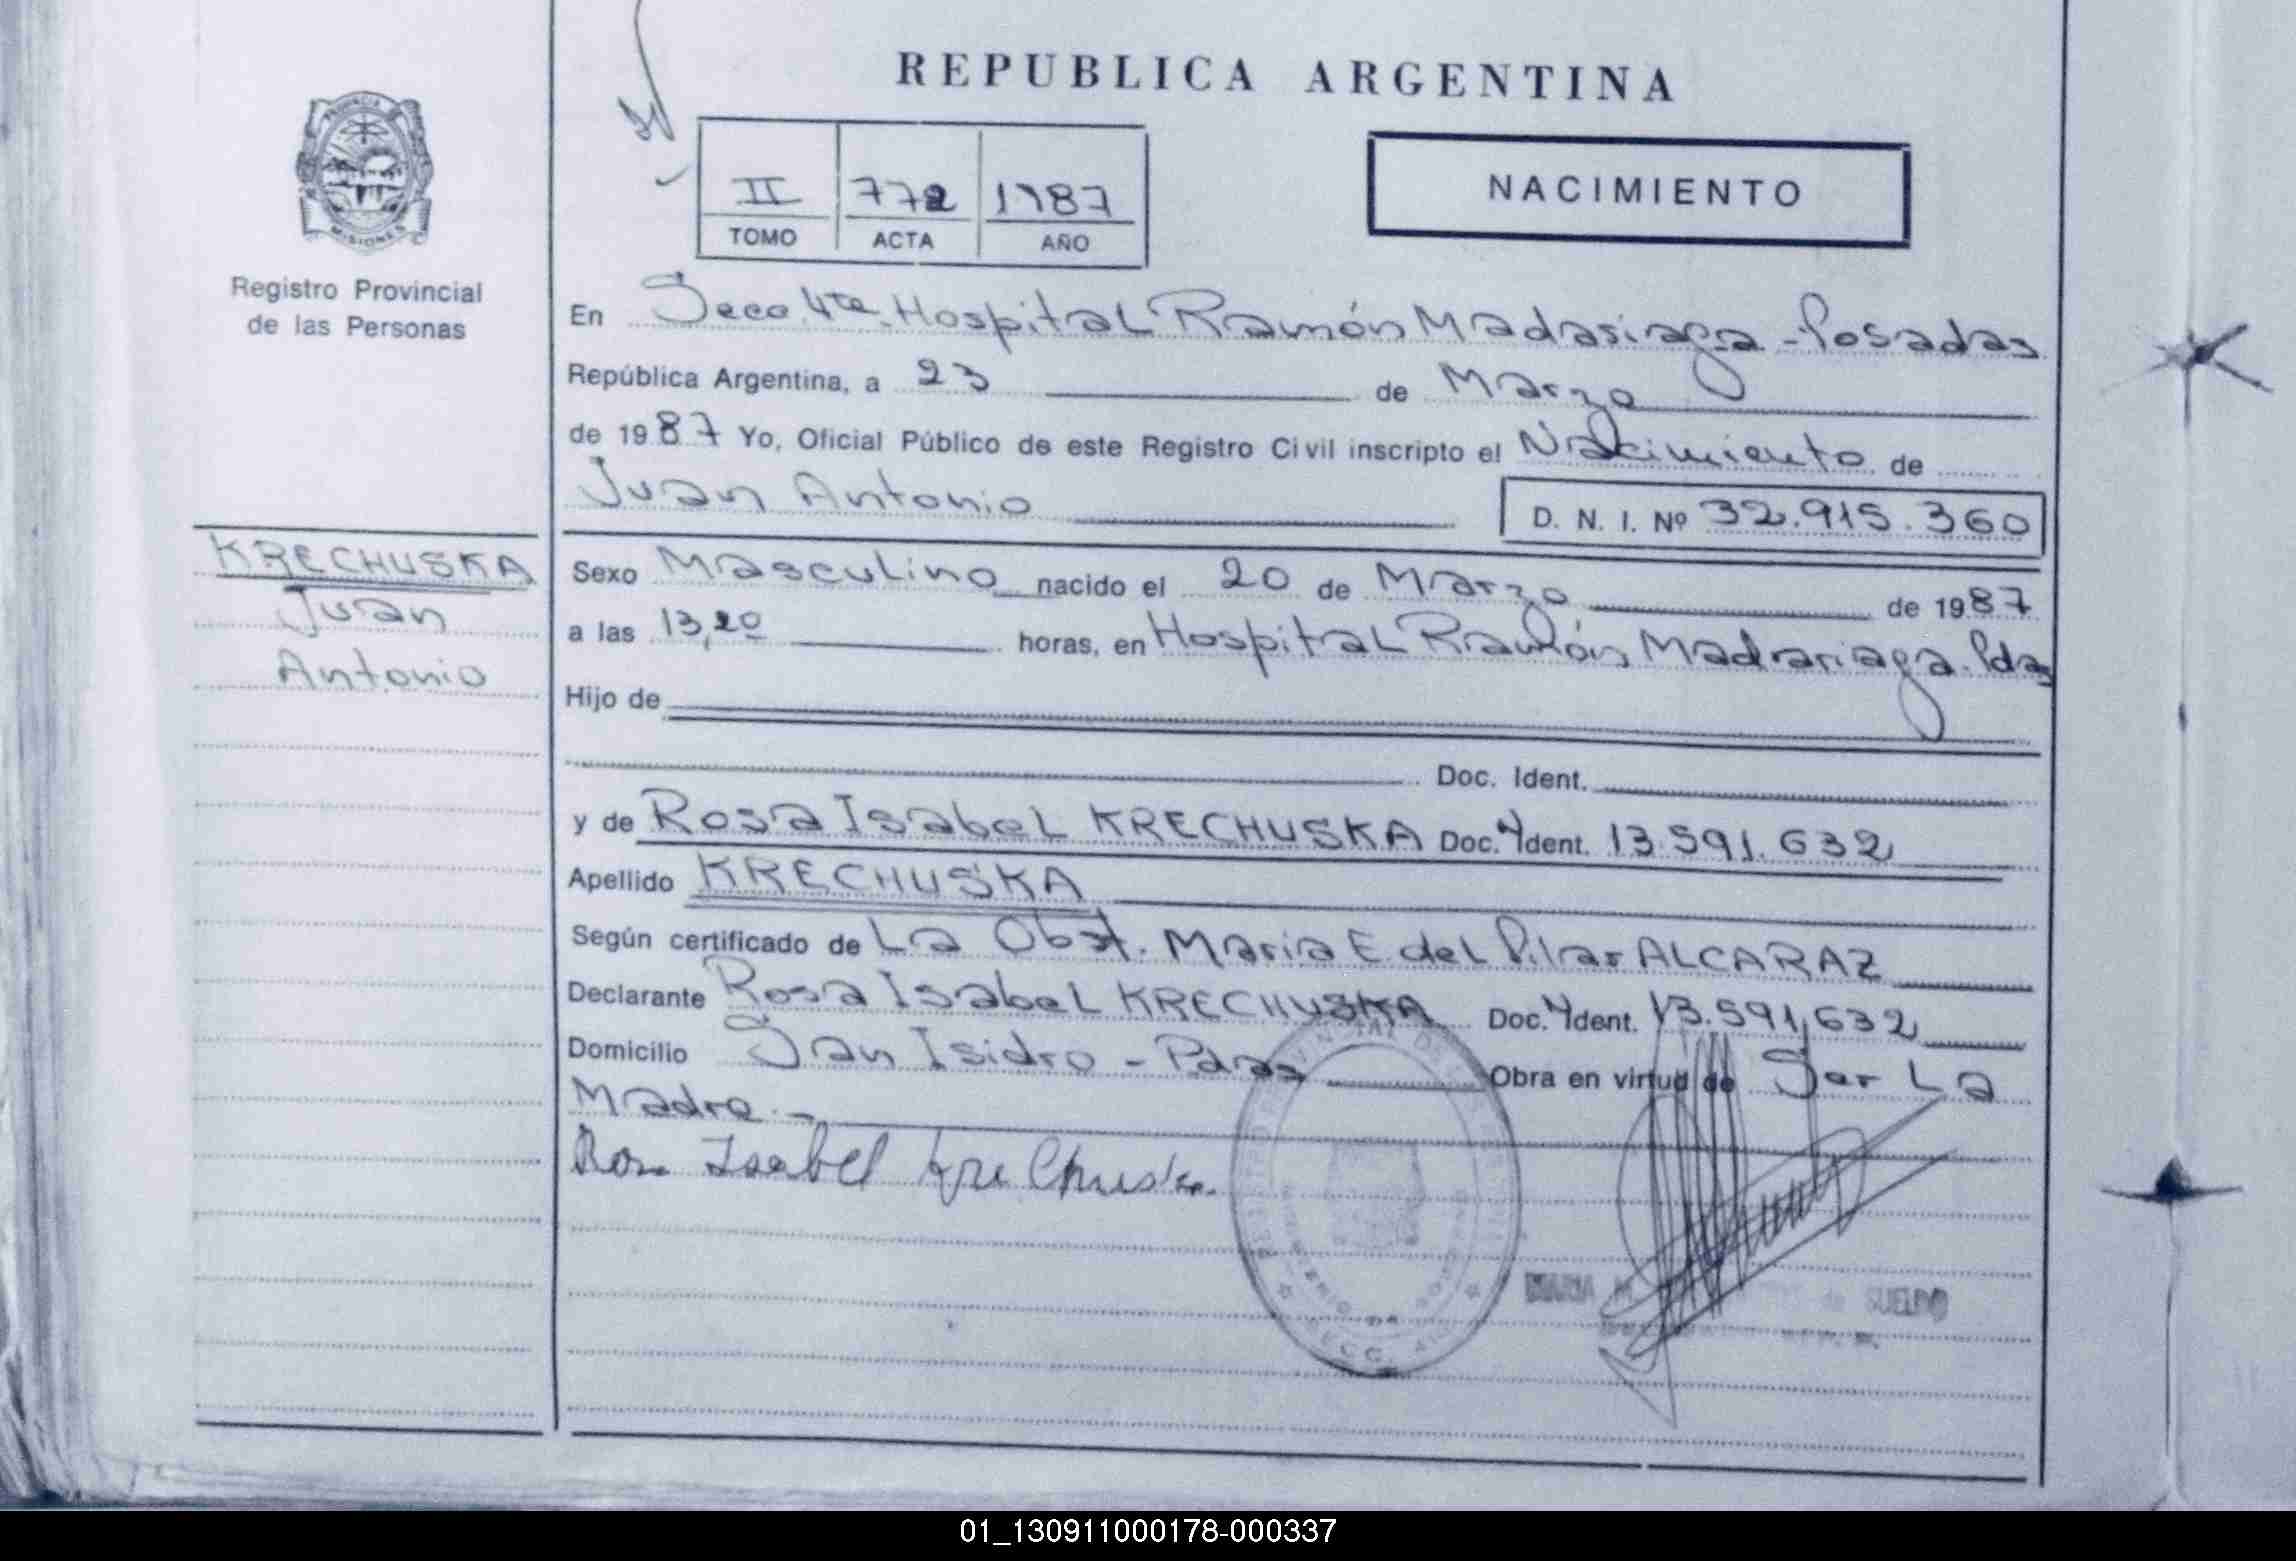 REPUBLICA ARGENTINA
II 772 1987
TOMO ACTA AÑO
NACIMIENTO
PROVINCIA DE
MISIONES
Registro Provincial
de las Personas
En Secc. 4ta. Hospital Ramón Madariaga - Posadas
República Argentina, a 23 de Marzo
de 1987 Yo, Oficial Público de este Registro Civil inscripto el Nacimiento de
Juan Antonio D. N. I. Nº 32.915.360
KRECHUSKA
Juan
Antonio
Sexo Masculino nacido el 20 de Marzo de 1987
a las 13,20 horas, en Hospital Ramón Madariaga. Pdas
Hijo de
Doc. Ident.
y de Rosa Isabel KRECHUSKA Doc. Ident. 13.591.632
Apellido KRECHUSKA
Según certificado de La Obst. Maria E. del Pilar ALCARAZ
Declarante Rosa Isabel KRECHUSKA Doc. Ident. 13.591,632
Domicilio San Isidro - Pdas Obra en virtud de Ser La
Madre.-
Rosa Isabel Krechuska
MARIA SUELDO
01_130911000178-000337